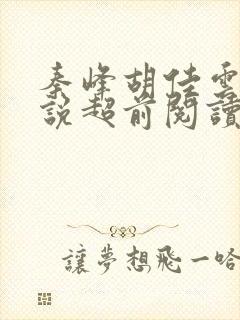 秦峰胡佳雲
說超前閱讀
讓夢想飛一哈